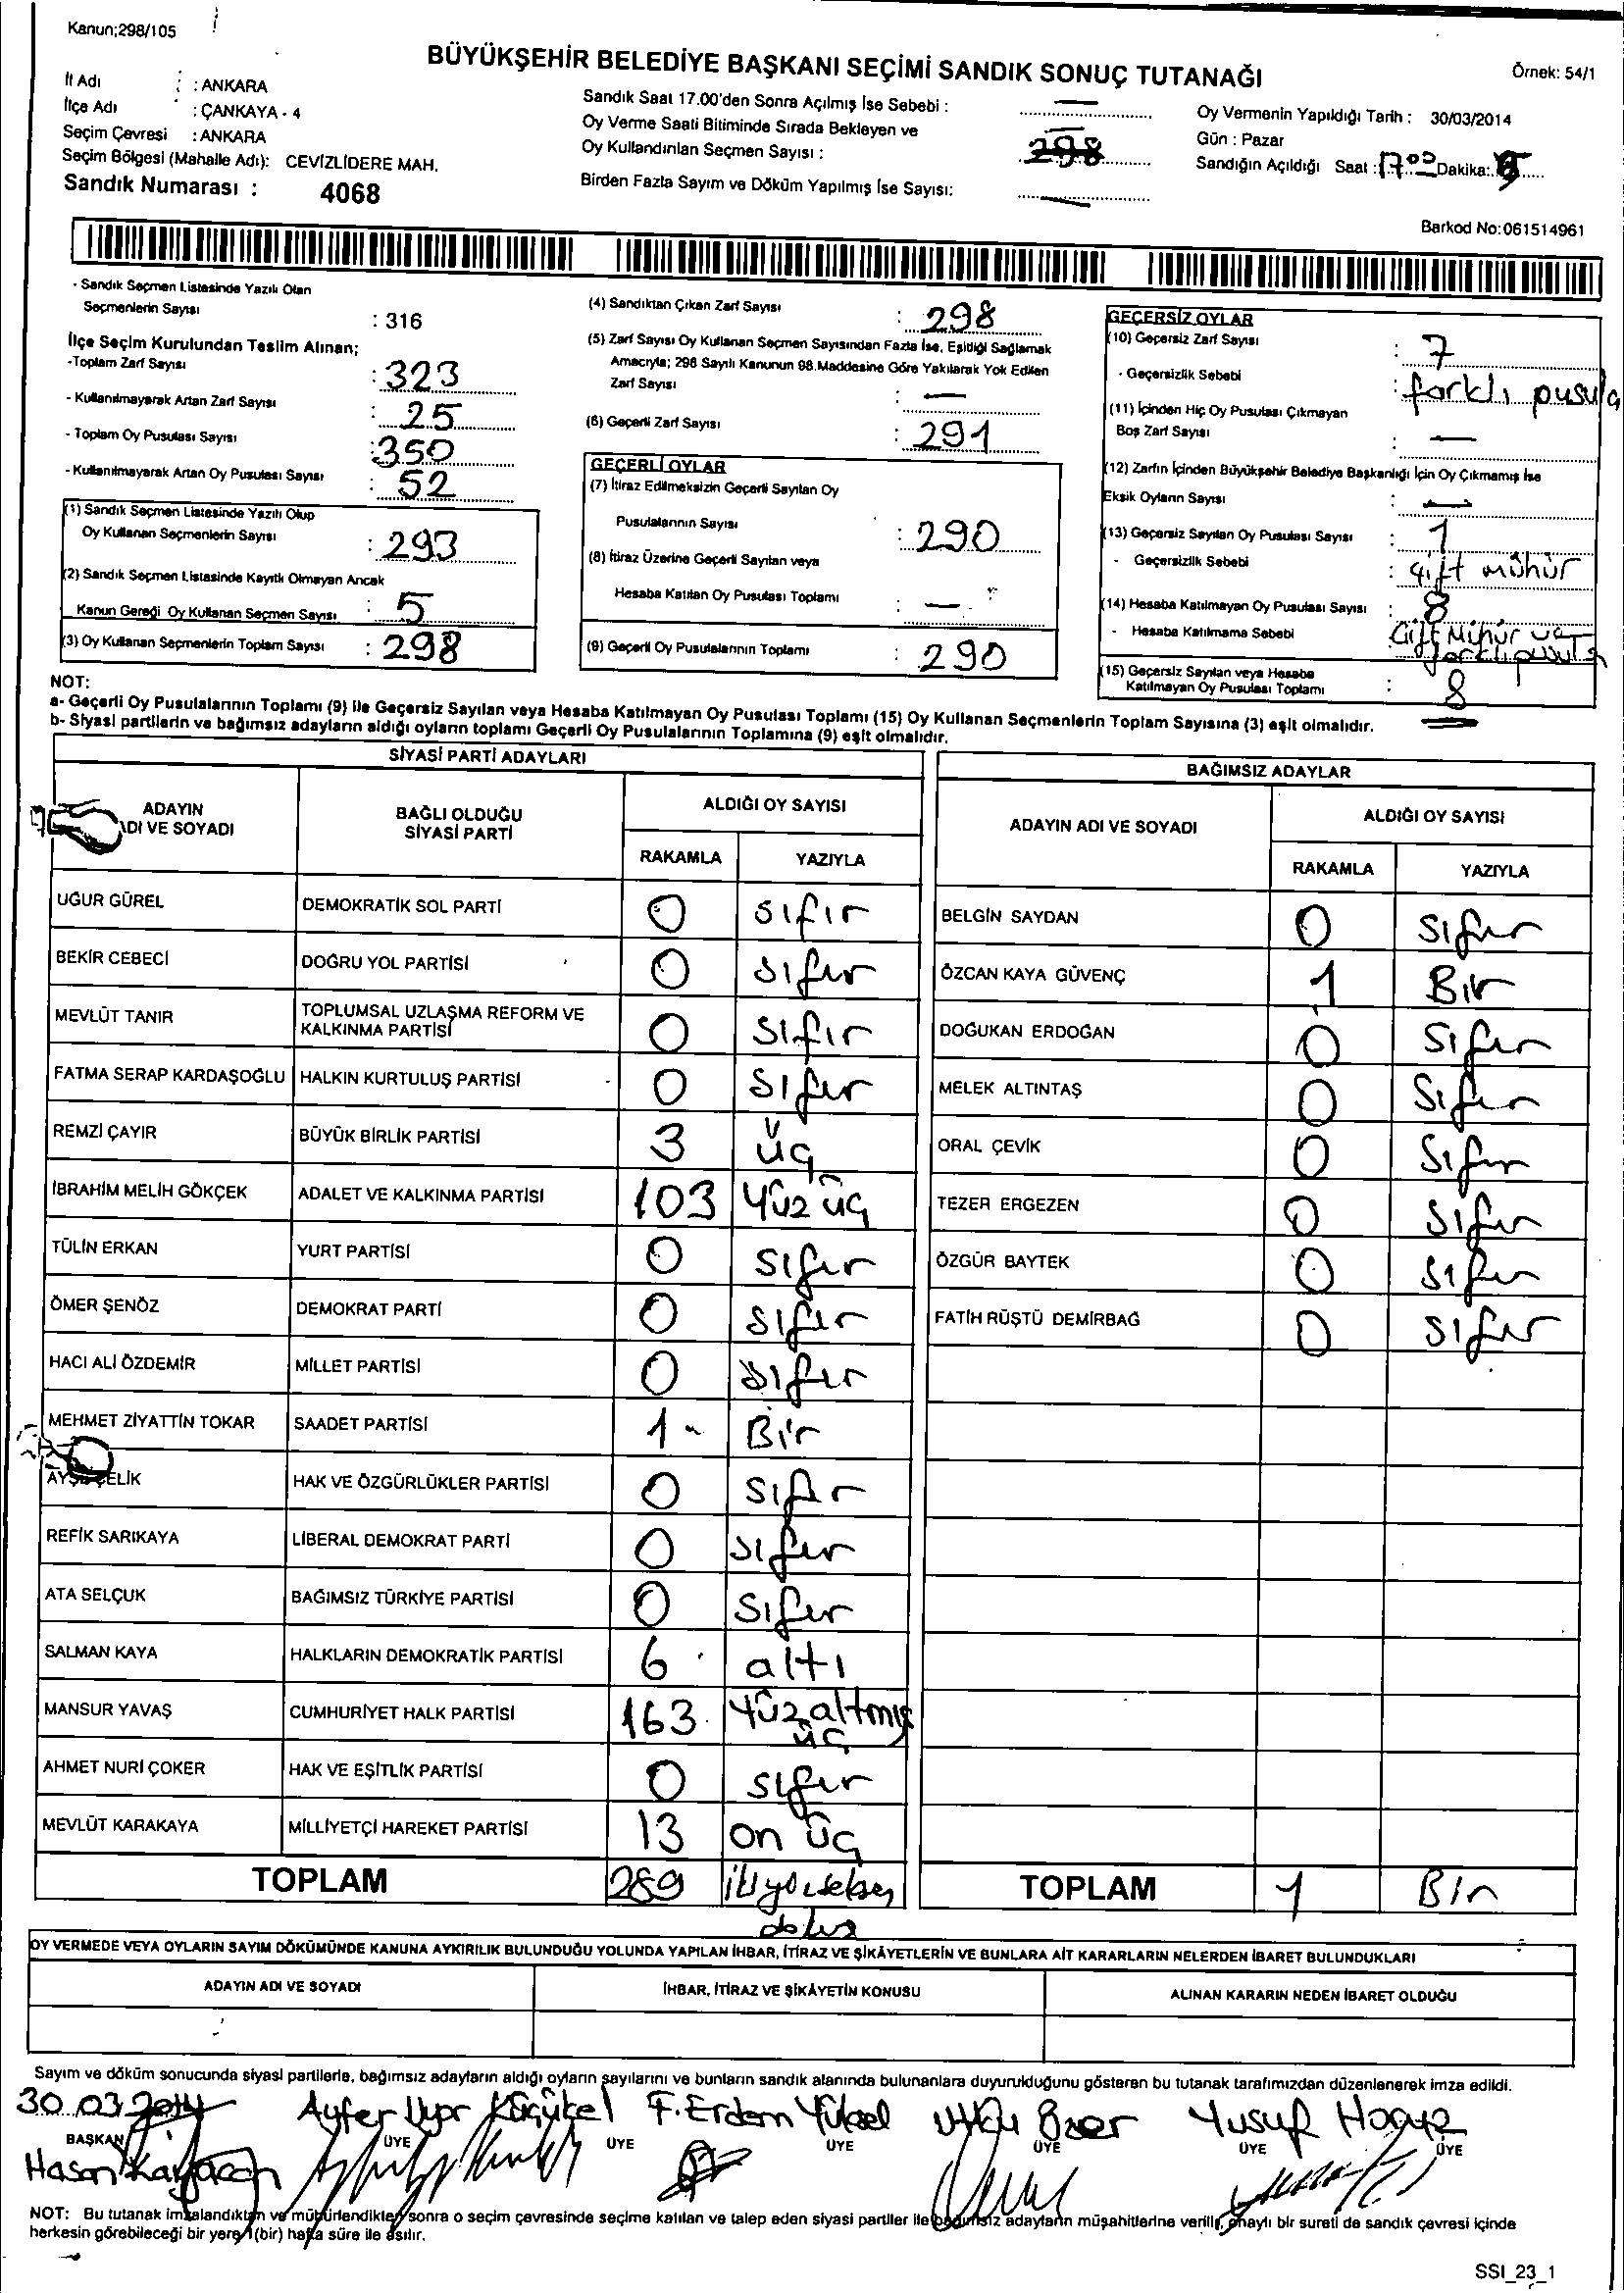 Kanun;298/105
BÜYÜKŞEHİR BELEDİYE BAŞKANI SEÇİMİ SANDIK SONUÇ TUTANAĞI
Örnek: 54/1
İl Adı : ANKARA
İlçe Adı : ÇANKAYA - 4
Seçim Çevresi : ANKARA
Seçim Bölgesi (Mahalle Adı): CEVİZLİDERE MAH.
Sandık Numarası : 4068
Sandık Saat 17.00'den Sonra Açılmış İse Sebebi : —
Oy Verme Saati Bitiminde Sırada Bekleyen ve
Oy Kullandırılan Seçmen Sayısı : 298
Birden Fazla Sayım ve Döküm Yapılmış İse Sayısı: —
Oy Vermenin Yapıldığı Tarih : 30/03/2014
Gün : Pazar
Sandığın Açıldığı Saat : 17.00 Dakika:
Barkod No:061514961
- Sandık Seçmen Listesinde Yazılı Olan
Seçmenlerin Sayısı : 316
İlçe Seçim Kurulundan Teslim Alınan;
-Toplam Zarf Sayısı : 323
- Kullanılmayarak Artan Zarf Sayısı : 25
- Toplam Oy Pusulası Sayısı : 350
- Kullanılmayarak Artan Oy Pusulası Sayısı : 52
(1) Sandık Seçmen Listesinde Yazılı Olup
Oy Kullanan Seçmenlerin Sayısı : 293
(2) Sandık Seçmen Listesinde Kayıtlı Olmayan Ancak
Kanun Gereği Oy Kullanan Seçmen Sayısı : 5
(3) Oy Kullanan Seçmenlerin Toplam Sayısı : 298
(4) Sandıktan Çıkan Zarf Sayısı : 298
(5) Zarf Sayısı Oy Kullanan Seçmen Sayısından Fazla İse, Eşitliği Sağlamak
Amacıyla; 298 Sayılı Kanunun 98.Maddesine Göre Yakılarak Yok Edilen
Zarf Sayısı : —
(6) Geçerli Zarf Sayısı : 291
GEÇERLİ OYLAR
(7) İtiraz Edilmeksizin Geçerli Sayılan Oy
Pusulalarının Sayısı : 290
(8) İtiraz Üzerine Geçerli Sayılan veya
Hesaba Katılan Oy Pusulası Toplamı : —
(9) Geçerli Oy Pusulalarının Toplamı : 290
GEÇERSİZ OYLAR
(10) Geçersiz Zarf Sayısı : 7
- Geçersizlik Sebebi : farklı pusula
(11) İçinden Hiç Oy Pusulası Çıkmayan
Boş Zarf Sayısı : —
(12) Zarfın İçinden Büyükşehir Belediye Başkanlığı İçin Oy Çıkmamış İse
Eksik Oyların Sayısı : —
(13) Geçersiz Sayılan Oy Pusulası Sayısı : 1
- Geçersizlik Sebebi : çift mühür
(14) Hesaba Katılmayan Oy Pusulası Sayısı : 8
- Hesaba Katılmama Sebebi : Çift Mühür ve
farklı pusula
(15) Geçersiz Sayılan veya Hesaba
Katılmayan Oy Pusulası Toplamı : 8
NOT:
a- Geçerli Oy Pusulalarının Toplamı (9) ile Geçersiz Sayılan veya Hesaba Katılmayan Oy Pusulası Toplamı (15) Oy Kullanan Seçmenlerin Toplam Sayısına (3) eşit olmalıdır.
b- Siyasi partilerin ve bağımsız adayların aldığı oyların toplamı Geçerli Oy Pusulalarının Toplamına (9) eşit olmalıdır.
SİYASİ PARTİ ADAYLARI
ADAYIN
ADI VE SOYADI
BAĞLI OLDUĞU
SİYASİ PARTİ
ALDIĞI OY SAYISI
RAKAMLA YAZIYLA
UĞUR GÜREL DEMOKRATİK SOL PARTİ 0 sıfır
BEKİR CEBECİ DOĞRU YOL PARTİSİ 0 sıfır
MEVLÜT TANIR TOPLUMSAL UZLAŞMA REFORM VE
KALKINMA PARTİSİ 0 sıfır
FATMA SERAP KARDAŞOĞLU HALKIN KURTULUŞ PARTİSİ 0 sıfır
REMZİ ÇAYIR BÜYÜK BİRLİK PARTİSİ 3 üç
İBRAHİM MELİH GÖKÇEK ADALET VE KALKINMA PARTİSİ 103 yüz üç
TÜLİN ERKAN YURT PARTİSİ 0 sıfır
ÖMER ŞENÖZ DEMOKRAT PARTİ 0 sıfır
HACI ALİ ÖZDEMİR MİLLET PARTİSİ 0 sıfır
MEHMET ZİYATTİN TOKAR SAADET PARTİSİ 1 Bir
AYŞE ÇELİK HAK VE ÖZGÜRLÜKLER PARTİSİ 0 sıfır
REFİK SARIKAYA LİBERAL DEMOKRAT PARTİ 0 sıfır
ATA SELÇUK BAĞIMSIZ TÜRKİYE PARTİSİ 0 sıfır
SALMAN KAYA HALKLARIN DEMOKRATİK PARTİSİ 6 altı
MANSUR YAVAŞ CUMHURİYET HALK PARTİSİ 163 yüzaltmış
üç
AHMET NURİ ÇOKER HAK VE EŞİTLİK PARTİSİ 0 sıfır
MEVLÜT KARAKAYA MİLLİYETÇİ HAREKET PARTİSİ 13 on üç
TOPLAM 289 ikiyüzseksen
dokuz
BAĞIMSIZ ADAYLAR
ADAYIN ADI VE SOYADI
ALDIĞI OY SAYISI
RAKAMLA YAZIYLA
BELGİN SAYDAN 0 sıfır
ÖZCAN KAYA GÜVENÇ 1 Bir
DOĞUKAN ERDOĞAN 0 sıfır
MELEK ALTINTAŞ 0 sıfır
ORAL ÇEVİK 0 sıfır
TEZER ERGEZEN 0 sıfır
ÖZGÜR BAYTEK 0 sıfır
FATİH RÜŞTÜ DEMİRBAĞ 0 sıfır
TOPLAM 1 Bir
OY VERMEDE VEYA OYLARIN SAYIM DÖKÜMÜNDE KANUNA AYKIRILIK BULUNDUĞU YOLUNDA YAPILAN İHBAR, İTİRAZ VE ŞİKÂYETLERİN VE BUNLARA AİT KARARLARIN NELERDEN İBARET BULUNDUKLARI
ADAYIN ADI VE SOYADI İHBAR, İTİRAZ VE ŞİKÂYETİN KONUSU ALINAN KARARIN NEDEN İBARET OLDUĞU
Sayım ve döküm sonucunda siyasi partilerle, bağımsız adayların aldığı oyların sayılarını ve bunların sandık alanında bulunanlara duyurulduğunu gösteren bu tutanak tarafımızdan düzenlenerek imza edildi.
30.03.2014 Ayfer Uyar F. Erdem Yüksel Utku Özer Yusuf
BAŞKAN ÜYE ÜYE ÜYE ÜYE ÜYE ÜYE
Hasan
NOT: Bu tutanak imzalandıktan ve mühürlendikten sonra o seçim çevresinde seçime katılan ve talep eden siyasi partiler ile bağımsız adayların müşahitlerine verilir, onaylı bir sureti de sandık çevresi içinde
herkesin görebileceği bir yere 1(bir) hafta süre ile asılır.
SSI_23_1